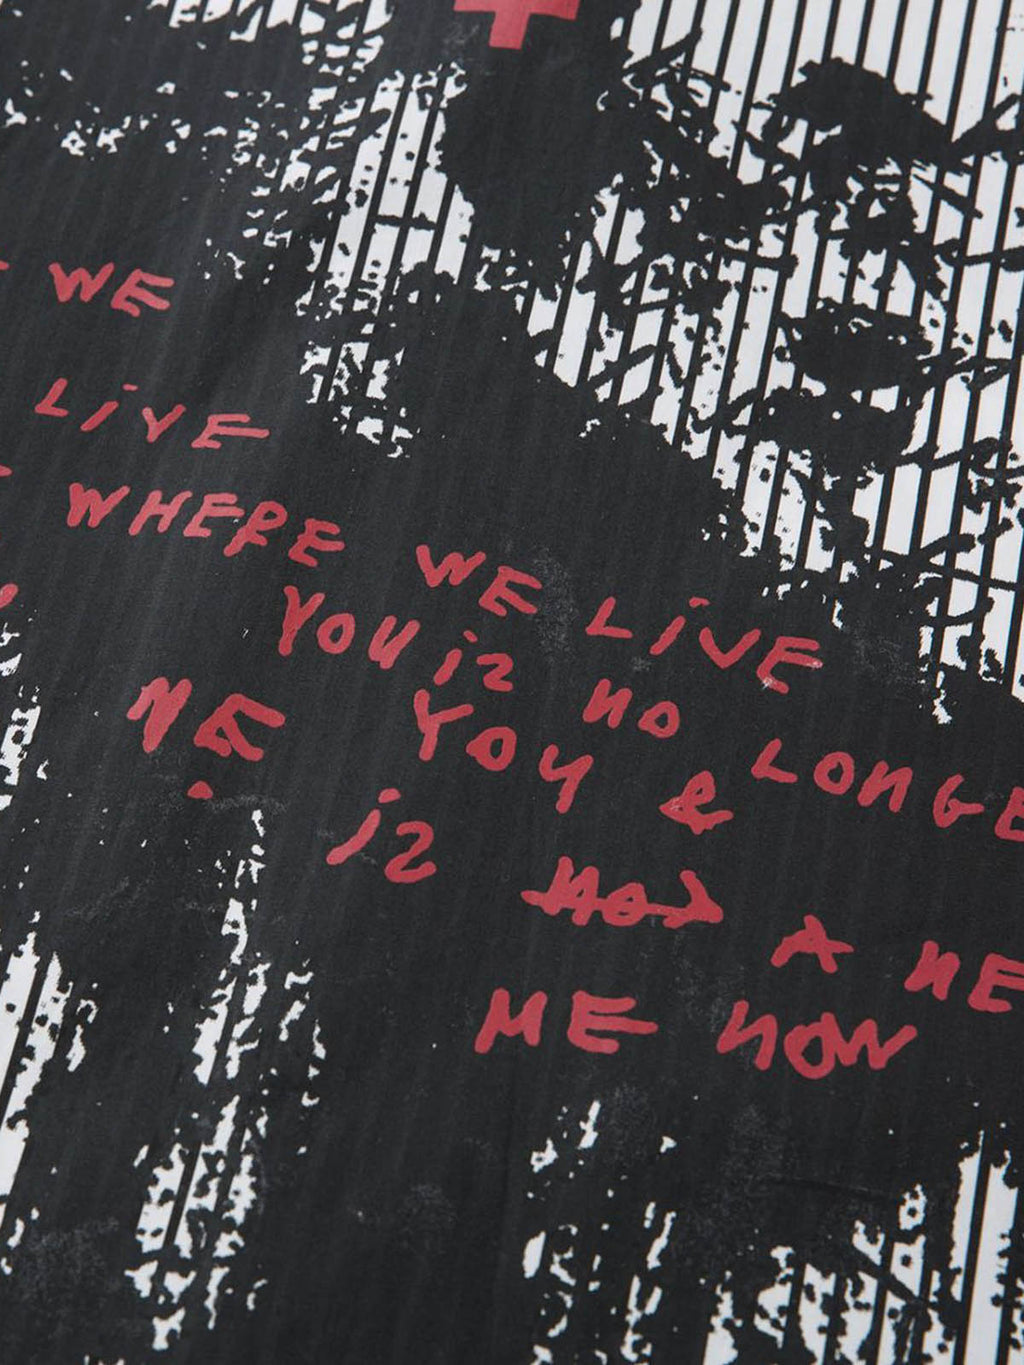 WE
LiVE
WHERE WE LiVE
YOU iz NO LONGE
ME YOU &
iz A NE
ME NOW